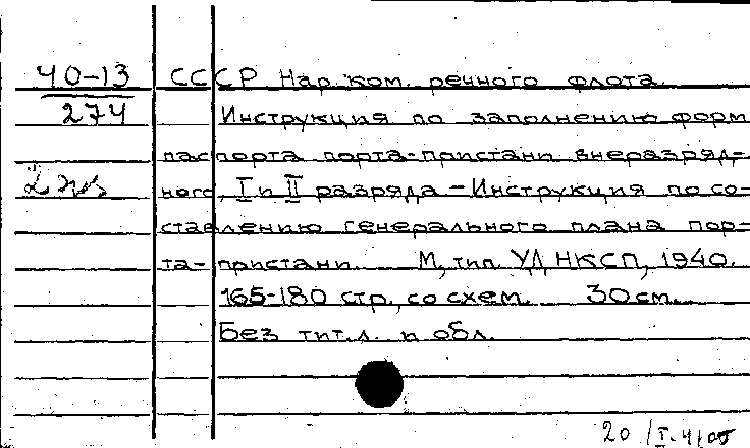 40-13 СССР Нар.ком. речного флота.
274 Инструкция по заполнению форм
паспорта порта-пристани внеразряд-
2 экз ного, I и II разряда - Инструкция по со-
ставлению генерального плана пор-
та-пристани. М, тип. УД НКСП, 1940.
165-180 стр., со схем. 30 см.
Без тит. л. и обл.
20/I-41